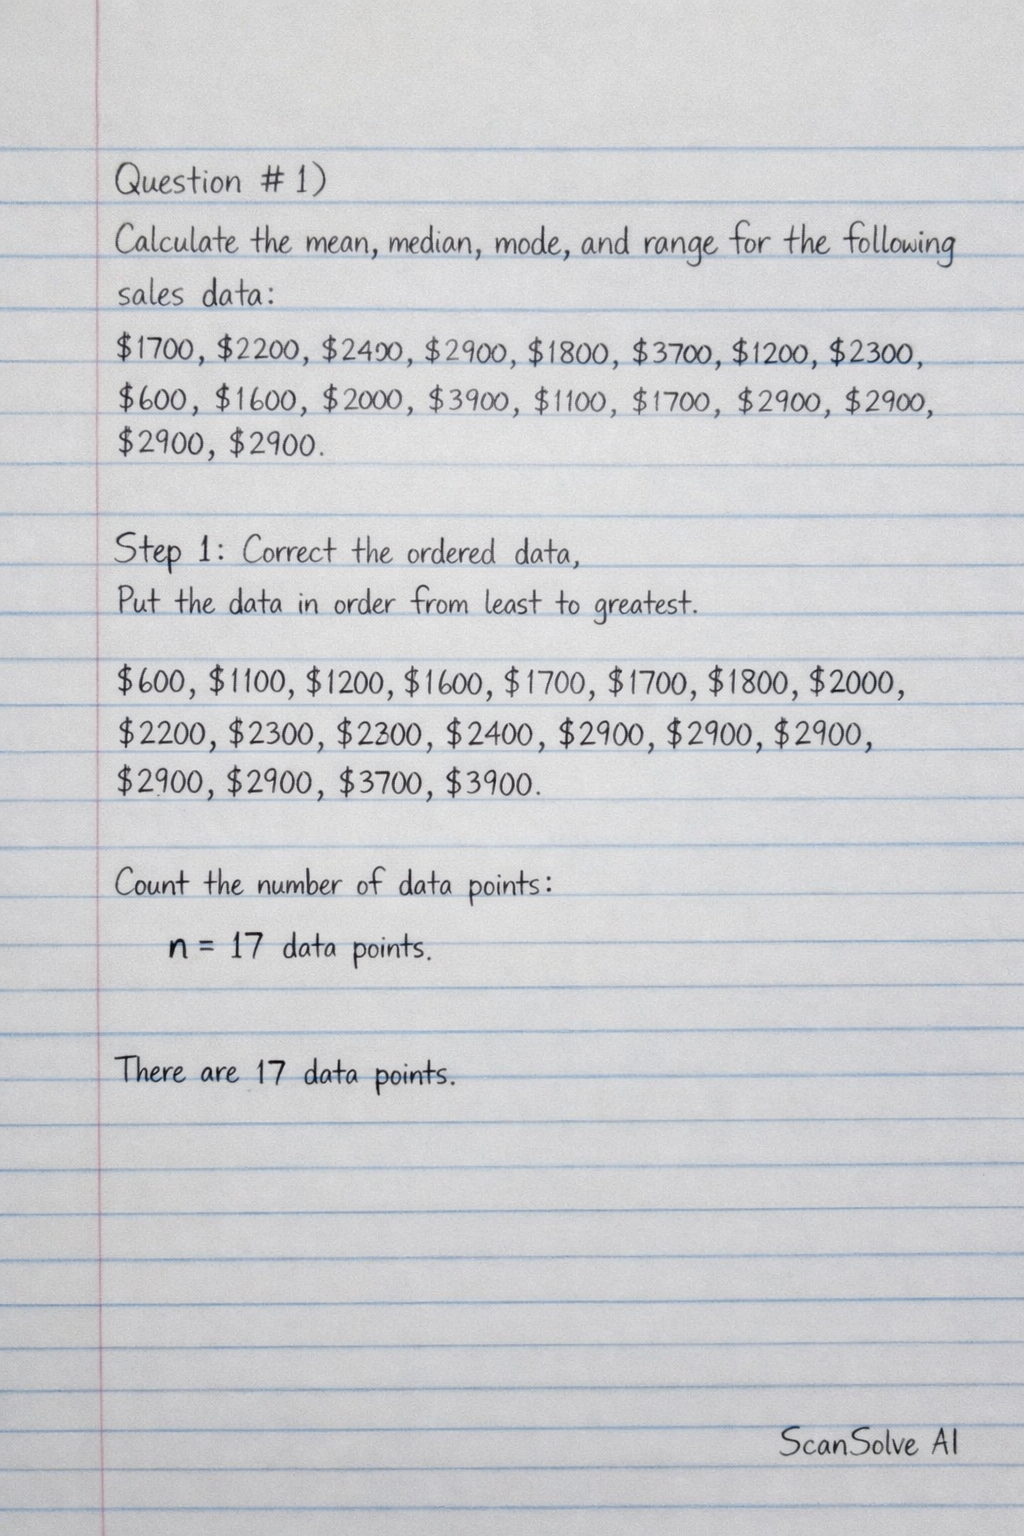 Question # 1)
Calculate the mean, median, mode, and range for the following
sales data:
$1700, $2200, $2400, $2900, $1800, $3700, $1200, $2300,
$600, $1600, $2000, $3900, $1100, $1700, $2900, $2900,
$2900, $2900.
Step 1: Correct the ordered data,
Put the data in order from least to greatest.
$600, $1100, $1200, $1600, $1700, $1700, $1800, $2000,
$2200, $2300, $2300, $2400, $2900, $2900, $2900,
$2900, $2900, $3700, $3900.
Count the number of data points:
n = 17 data points.
There are 17 data points.
ScanSolve AI